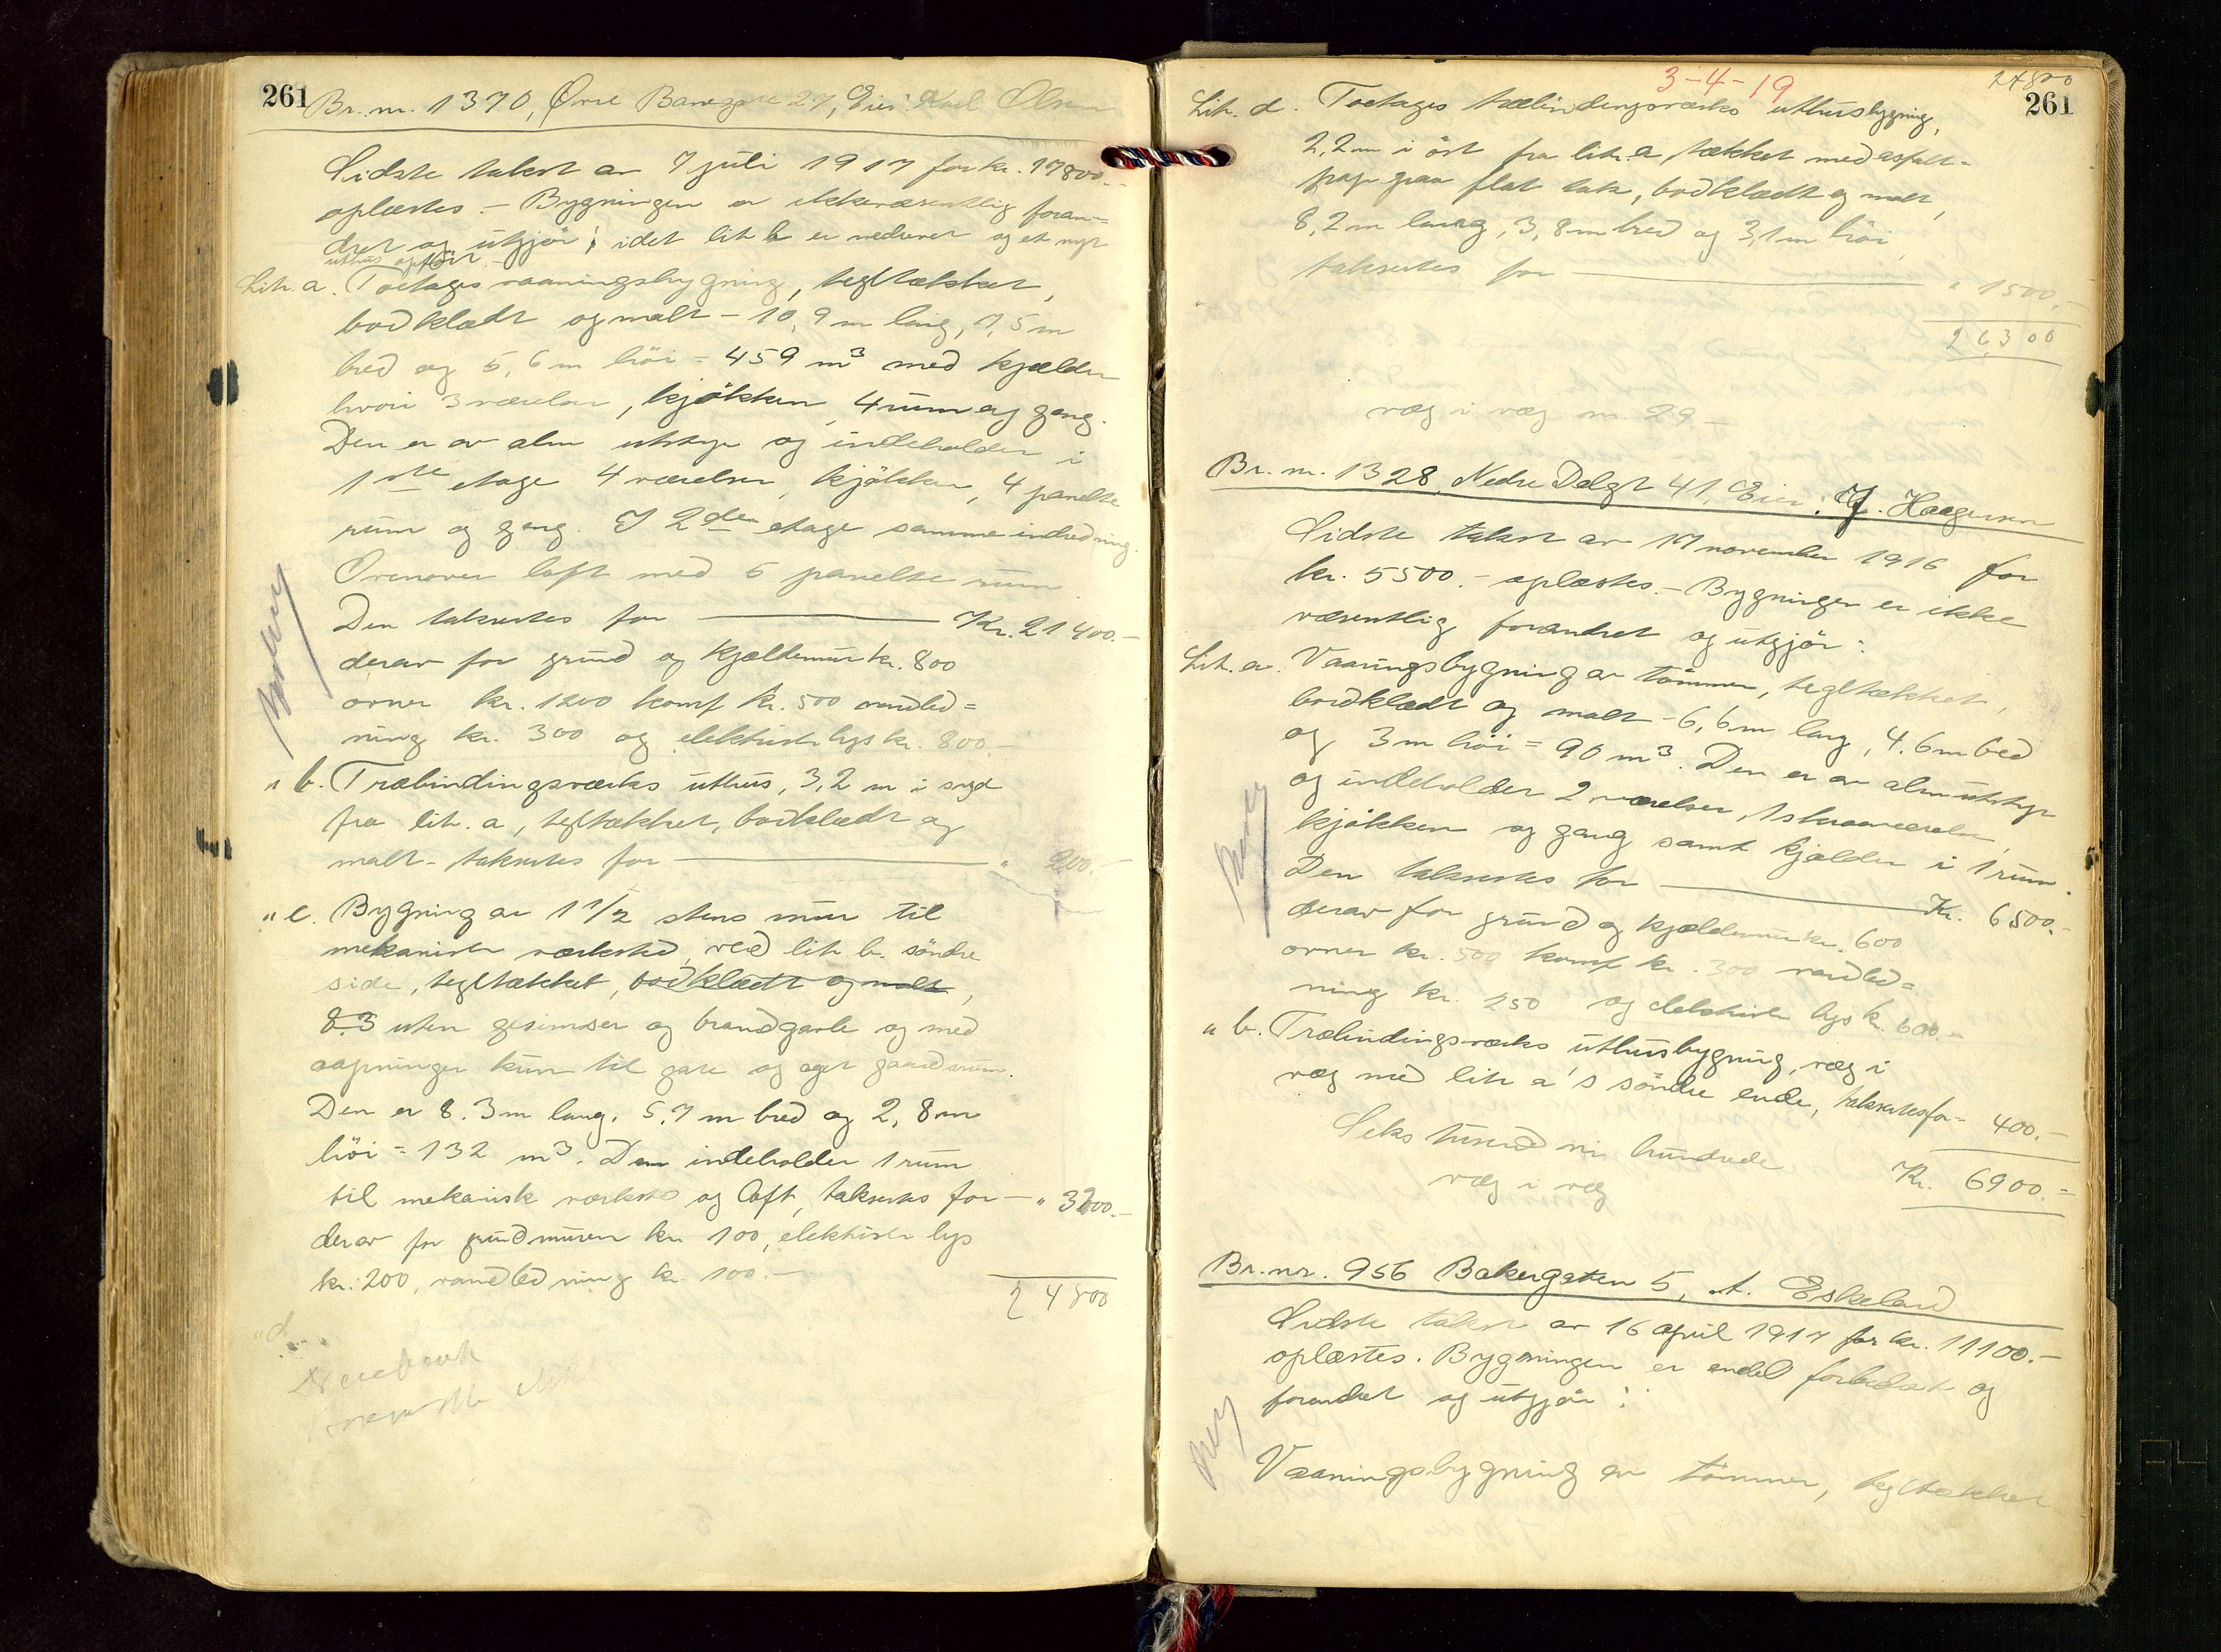 261
Br. nr. 1370, Øvre Banegate 27, Eier: Karl Olsen
Sidste takst av 7 juli 1917 for kr. 17800.-
oplæstes. - Bygningen er ikke væsentlig foran=
dret og utgjör; idet lit b er nedrevet og et nyt
uthus opfört -
Lit. a. Toetages vaaningsbygning, tegltækket,
bordklædt og malt - 10,9 m lang, 7,5 m
bred og 5,6 m höi = 459 m³ med kjælder
hvori 3 værelser, kjökken, 4 rum og gang.
Den er av alm utstyr og indeholder i
1ste etage 4 værelser, kjökken, 4 panelte
rum og gang. I 2den etage samme indredning.
Ovenover loft med 5 panelte rum.
Den takseres for — Kr. 21400.-
derav for grund og kjældermur kr. 800
ovner kr. 1200 komf kr. 500 vandled=
ning kr. 300 og elektrisk lys kr. 800.-
" b. Træbindingsværks uthus, 3,2 m i syd
fra lit. a, tegltækket, bordklædt og
malt - takseres for — " 200.-
" c. Bygning av 1 1/2 stens mur til
mekanisk verksted, ved lit b. söndre
side, tegltækket, bordklædt og malt,
8.3 uten gesimser og brandgavle og med
aapninger kun til gate og eget gaardsrum.
Den er 8.3 m lang, 5.7 m bred og 2,8 m
höi = 132 m³. Den indeholder 1 rum
til mekanisk verksted og loft, takseres for — " 3200.-
derav for grundmuren kr 100, elektrisk lys
kr. 200, vandledning kr. 100.-
24800
" d.
3-4-19
24800
261
Lit. d. Toetages træbindingsværks uthusbygning,
2,2 m i öst fra lit. a, tækket med asfalt=
pap paa flat tak, bordklædt og malt,
8,2 m lang, 3,8 m bred og 3,1 m höi
takseres for — " 1500.-
26300
væg i væg nr. 29 -
Br. nr. 1328, Nedre Dalgt 41, Eier: J. Haagensen
Sidste takst av 17 november 1916 for
kr. 5500.- oplæstes. - Bygningen er ikke
væsentlig forandret og utgjör:
Lit. a. Vaaningsbygning av tömmer, tegltækket,
bordklædt og malt - 6,6 m lang, 4.6 m bred
og 3 m höi = 90 m³. Den er av alm utstyr
og indeholder 2 værelser, 1 skraaværelse,
kjökken og gang samt kjælder i 1 rum.
Den takseres for — Kr. 6500.-
derav for grund og kjældermur kr. 600
ovner kr. 500 komf kr. 300 vandled=
ning kr. 250 og elektrisk lys kr. 600.-
" b. Træbindingsværks uthusbygning, væg i
væg med lit a's söndre ende, takseres for - 400.-
Seks tusend ni hundrede
Kr. 6900.=
væg i væg
Br. nr. 956 Bakergaten 5, A. Eskeland
Sidste takst av 16 april 1917 for kr. 11100.-
oplæstes. Bygningen er endel forbedret og
forandret og utgjör:
Vaaningsbygning av tömmer, tegltækket